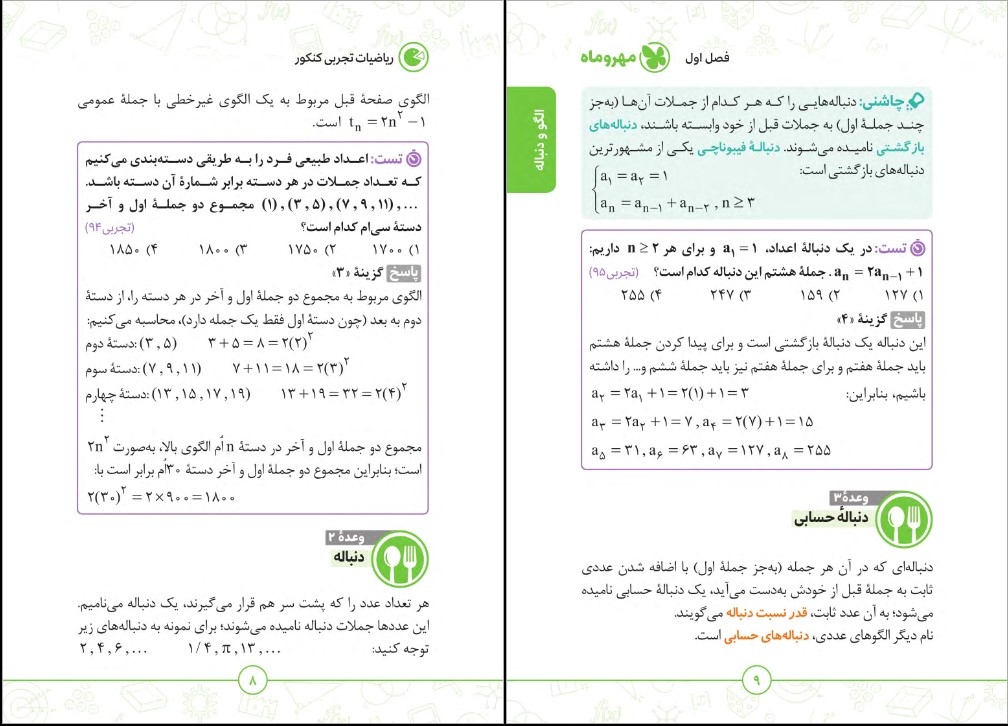 ریاضیات تجربی کنکور
الگوی صفحهٔ قبل مربوط به یک الگوی غیرخطی با جملهٔ عمومی
tₙ = ۲n² − ۱ است.
تست: اعداد طبیعی فرد را به طریقی دسته‌بندی می‌کنیم
که تعداد جملات در هر دسته برابر شمارهٔ آن دسته باشد.
(۱), (۳, ۵), (۷, ۹, ۱۱), ... مجموع دو جملهٔ اول و آخر
دستهٔ سی‌ام کدام است؟ (تجربی ۹۴)
۱) ۱۷۰۰ ۲) ۱۷۵۰ ۳) ۱۸۰۰ ۴) ۱۸۵۰
پاسخ گزینهٔ «۳»
الگوی مربوط به مجموع دو جملهٔ اول و آخر در هر دسته را، از دستهٔ
دوم به بعد (چون دستهٔ اول فقط یک جمله دارد)، محاسبه می‌کنیم:
دستهٔ دوم: (۳, ۵) ۳ + ۵ = ۸ = ۲(۲)²
دستهٔ سوم: (۷, ۹, ۱۱) ۷ + ۱۱ = ۱۸ = ۲(۳)²
دستهٔ چهارم: (۱۳, ۱۵, ۱۷, ۱۹) ۱۳ + ۱۹ = ۳۲ = ۲(۴)²
⋮
مجموع دو جملهٔ اول و آخر در دستهٔ n اُم الگوی بالا، به‌صورت ۲n²
است؛ بنابراین مجموع دو جملهٔ اول و آخر دستهٔ ۳۰اُم برابر است با:
۲(۳۰)² = ۲ × ۹۰۰ = ۱۸۰۰
وعدهٔ ۲
دنباله
هر تعداد عدد را که پشت سر هم قرار می‌گیرند، یک دنباله می‌نامیم.
این عددها جملات دنباله نامیده می‌شوند؛ برای نمونه به دنباله‌های زیر
توجه کنید: ۲, ۴, ۶, ... ۱/۴, π, ۱۳, ...
۸
فصل اول
مهروماه
الگو و دنباله
چاشنی: دنباله‌هایی را که هر کدام از جملات آن‌ها (به‌جز
چند جملهٔ اول) به جملات قبل از خود وابسته باشند، دنباله‌های
بازگشتی نامیده می‌شوند. دنبالهٔ فیبوناچی یکی از مشهورترین
دنباله‌های بازگشتی است:
a₁ = a₂ = ۱
aₙ = aₙ₋₁ + aₙ₋₂ , n ≥ ۳
تست: در یک دنبالهٔ اعداد، a₁ = ۱ و برای هر n ≥ ۲ داریم:
aₙ = ۲aₙ₋₁ + ۱. جملهٔ هشتم این دنباله کدام است؟ (تجربی ۹۵)
۱) ۱۲۷ ۲) ۱۵۹ ۳) ۲۴۷ ۴) ۲۵۵
پاسخ گزینهٔ «۴»
این دنباله یک دنبالهٔ بازگشتی است و برای پیدا کردن جملهٔ هشتم
باید جملهٔ هفتم و برای جملهٔ هفتم نیز باید جملهٔ ششم و... را داشته
باشیم، بنابراین: a₂ = ۲a₁ + ۱ = ۲(۱) + ۱ = ۳
a₃ = ۲a₂ + ۱ = ۷ , a₄ = ۲(۷) + ۱ = ۱۵
a₅ = ۳۱, a₆ = ۶۳, a₇ = ۱۲۷, a₈ = ۲۵۵
وعدهٔ ۳
دنبالهٔ حسابی
دنباله‌ای که در آن هر جمله (به‌جز جملهٔ اول) با اضافه شدن عددی
ثابت به جملهٔ قبل از خودش به‌دست می‌آید، یک دنبالهٔ حسابی نامیده
می‌شود؛ به آن عدد ثابت، قدر نسبت دنباله می‌گویند.
نام دیگر الگوهای عددی، دنباله‌های حسابی است.
۹